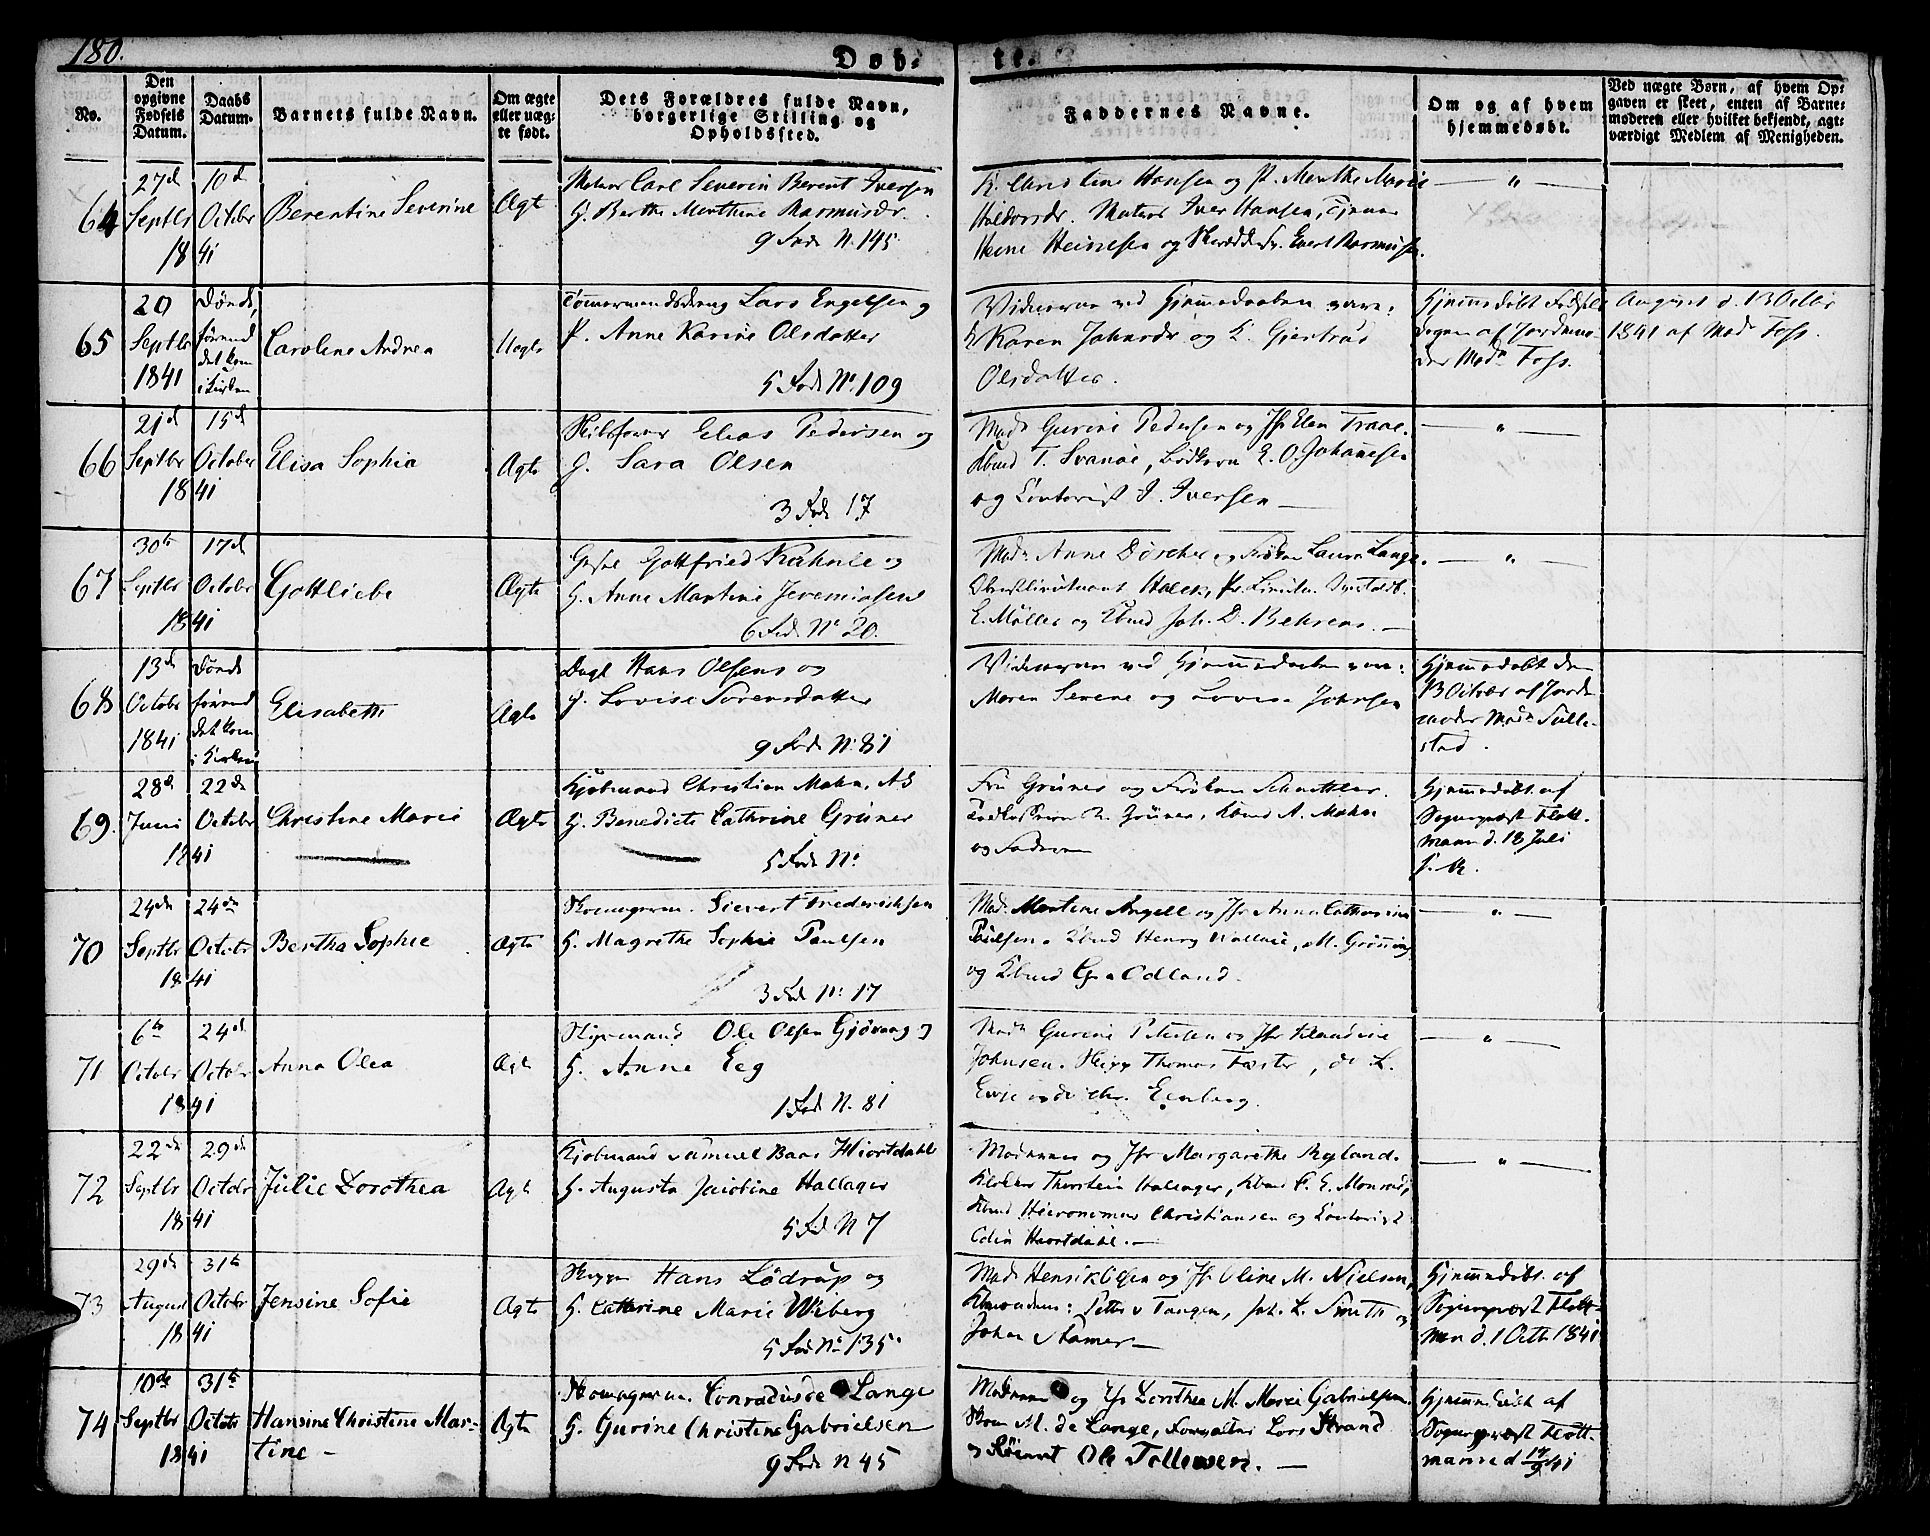 180.
Døb-
te.
No.
Den opgivne Fødsels Datum.
Daabs Datum.
Barnets fulde Navn.
Om ægte eller uæg- te født.
Dets Forældres fulde Navn, borgerlige Stilling og Opholdssted.
Faddernes Navne.
Om og af hvem hjemmedøbt.
Ved uægte Børn, af hvem Op-
gaven er skeet, enten af Barne-
moderen eller hvilket bekjendt, agt-
værdigt Medlem af Menigheden.
64
27d Septbr 1841
10d October
Berentine Severine
Ægt
Carl Severin Berent Iversen
H. Berthe Merthine Rasmusdr.
9 Fod. N. 145
K. Christine Hansen og P. Merthe Marie
Haldorsdr. Iver Hansen,
Heine Heinesen og Evert Rasmussen.
65
20 Septbr 1841
Døde, førend det kom i Kirken
Caroline Andrea
Uægte
Tømmermandsdreng Lars Engelsen og
P. Anne Karine Olsdatter
5 Fod. No. 109
Vidnerne ved Hjemmedaaben vare:
K. Karen Johnsdr og K. Giertrud
Olsdatter.
Hjemmedøbt Fødsels-
dagen af Jordemo-
der Mad. Foss.
Angivet d. 13 Octbr
1841 af Mad. Foss.
66
21d Septbr 1841
15d October
Elisa Sophia
Ægte
Elias Pedersen og
H. Sara Olsen
3 Fod. 17
Mad. Gurine Pedersen og Jfr Elen Traae.
Kbmd T. Svanøe, Bødkern E. O. Johanesen
og Contorist J. Iversen
67
30te Septbr 1841
17d October
Gottliebe
Ægte
Gottfried Kahnle og
H. Anne Martine Jeremiasen
6 Fod. No. 20.
Mad. Anne Dörcher og Frøken Laura Lange.
E. Møller og Kbmd Joh. D. Behrens.
68
13d October 1841
Døde førend det kom i Kirken
Elisabeth
Ægte
Dagl Hans Olsens og
H. Lovise Sørensdatter
9 Fod. N. 81
Vidnerne ved Hjemmedaaben vare:
Maren Serene og Lovise Johnsen
Hjemmedøbt den
13 Octbr af Jorde-
moder Mad. Tulle-
stad.
69.
28d Juni 1841
22de October
Christine Marie
Ægte
Kjøbmand Christian Mohn, AS
H. Benedicte Cathrine Grüner
5 Fod. N:
Fru Grüner og Frøken
Grüner, Kbmd A. Mohn
og Faderen
Hjemmedøbt af
Sogneprest Flott-
mann d. 18 Juli
70
24de Septbr 1841
24de October
Bertha Sophie
Ægte
Skomagerm. Sievert Frederichsen
H. Magrethe Sophie Paulsen
3 Fod. N: 17
Mad. Martine Angell og Jfr Anne Catharine
Paulsen. Kbmd Henry Wallace, M. Grønning
og Kbmd Odland.
71
6te October 1841
24d October
Anna Olea
Ægte
Ole Olsen Gjøvaag og
H. Anne Eeg
1 Fod. N. 81
Mad. Gurine Petersen og Jfr Klaudine
Johnsen. Skipp Thomas Foster, do L.
Eenberg.
72
22de Septbr 1841
29de October
Julie Dorothea
Ægte
Kjøbmand Samuel Baas Hiortdahl
H. Augusta Jacobine Hallager
5 Fod. N 7
Madamme og Jfr Margarethe Ryland.
Klokker Thorstein Halleager, Kbmd C. E. Monrad,
Kbmd Hieronimus Christiansen og Contorist
Edvin Hiortdahl.
73
29de August 1841
31te October
Jensine Sofie
Ægte
Skipper Hans Lødrup og
H. Cathrine Marie Wiberg
5 Fod. No. 135
Mad. Henrik Olsen og Jfr. Oline M. Nielsen,
Kbmændene: Petter v Tangen, Joh. L. Smith og
Johan Stamer
Hjemmedøbt. af
Sogneprest Flott-
man d. 1 Octb. 1841
74
10de Septbr 1841
31te October
Hansine Christine Mar-
tine
Ægte
Skomagerm. Conradus de Lange
H. Gurine Christine Gabrielsen
9 Fod. N 45
Madamme og Jfr Dorthea M. Marie Gabrielsen.
Skom M. de Lange, Forvalter Lars Strand
og Ole Tollevsen.
Hjemmedøbt af
Sogneprest Flott-
mann d 17/9 41